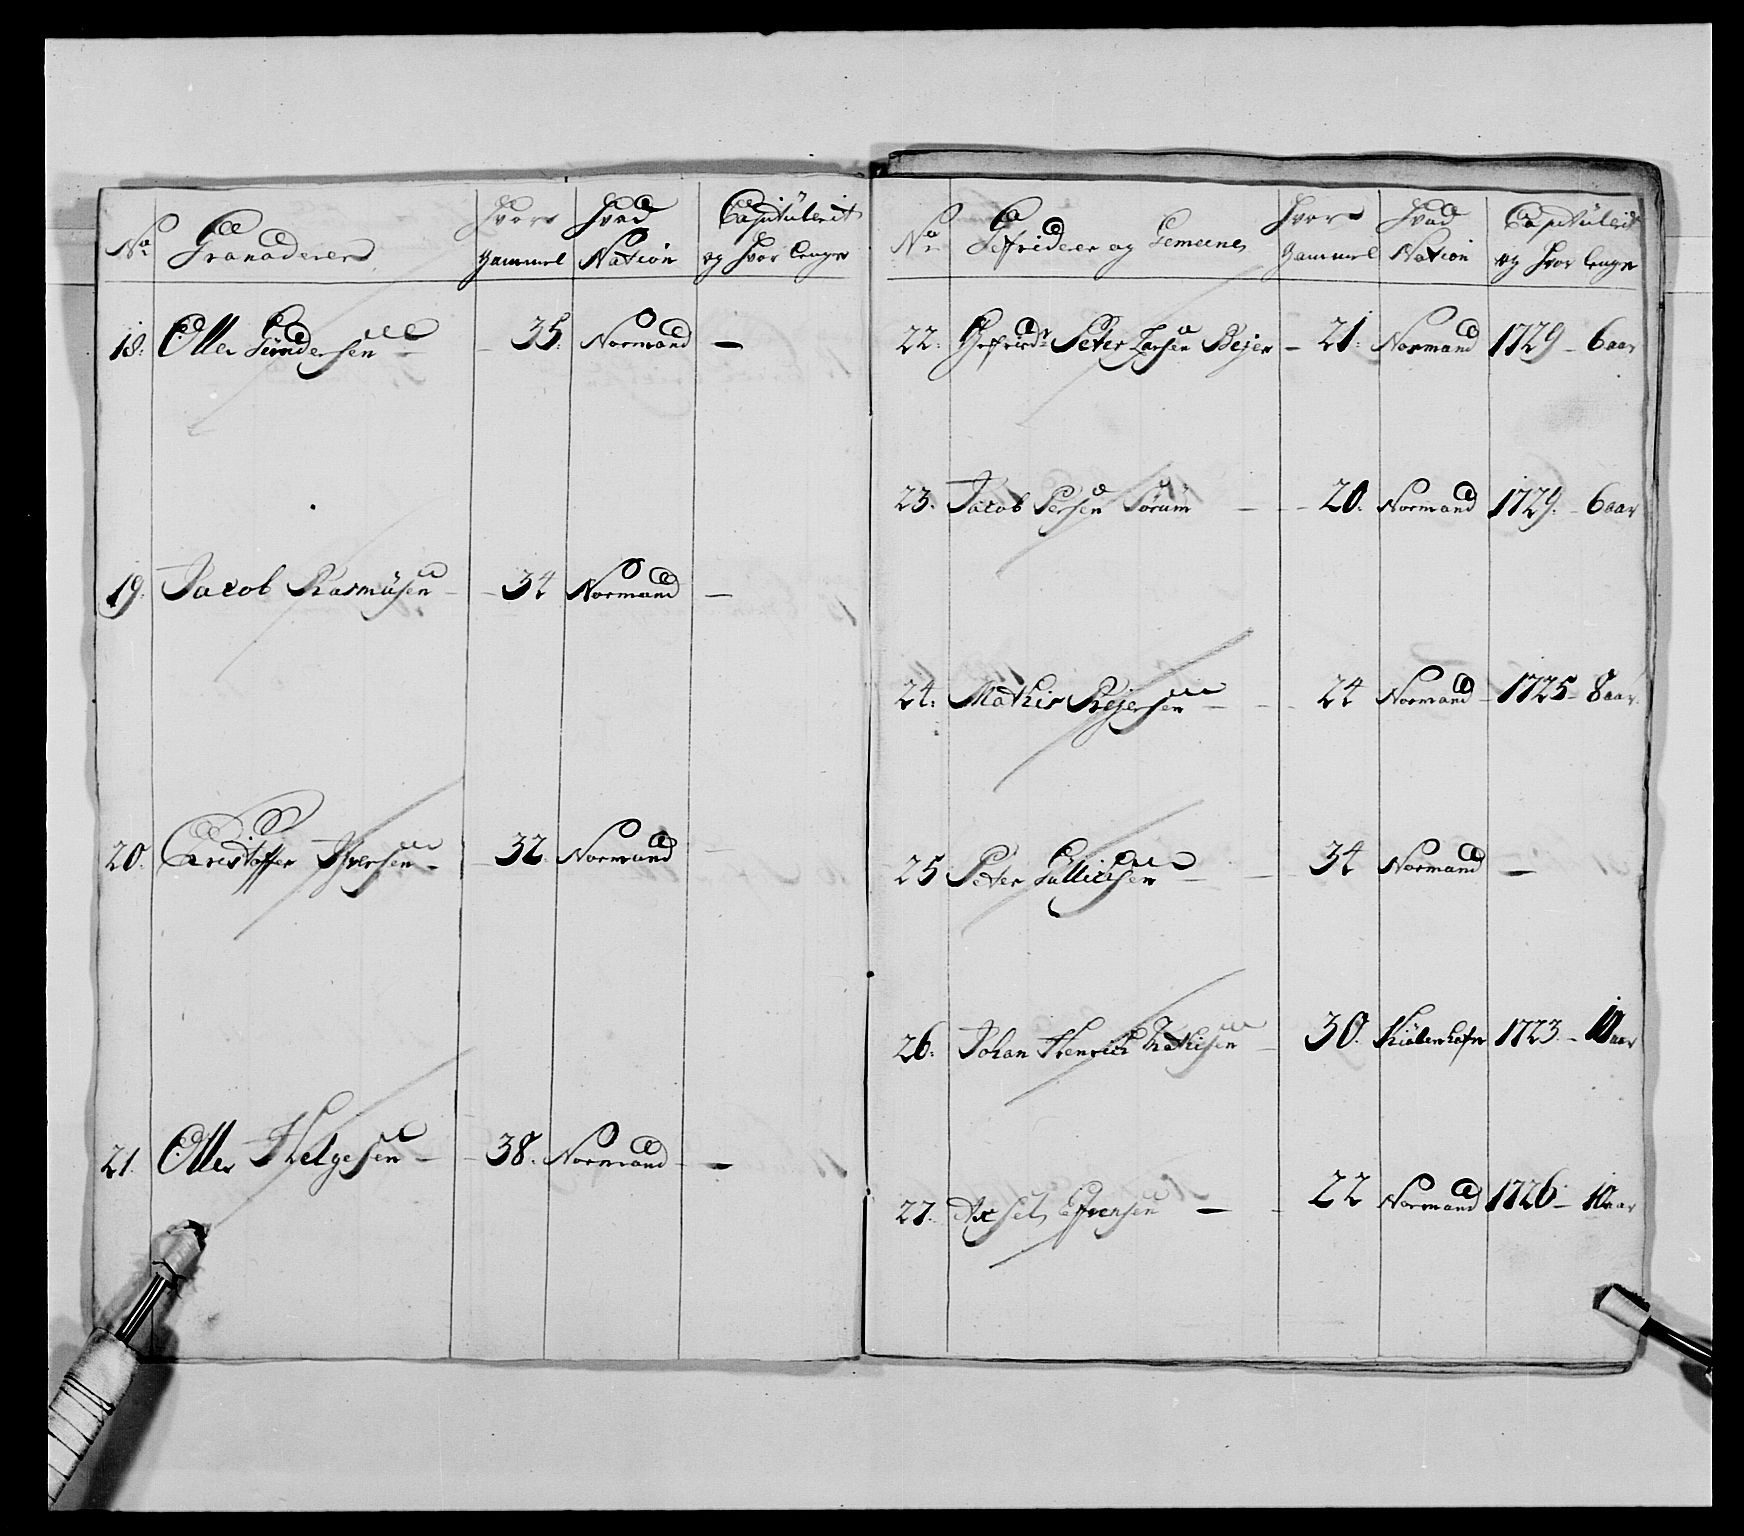 No Granaderer Hvor Gammel Hvad Nation Capituleret og hvor lenge
18. Oller Gundersen – 35. Normand –
19. Jacob Rasmusen – 34 Normand –
20. Cristoffer Iversen – 32. Normand –
21. Oller Helgesen – 38. Normand –
No Gefrider og Gemeene Hvor Gammel Hvad Nation Capituleret og hvor lenge
22. Gefridr Peter Larsen Bejer – 21. Normand 1729 – 6 aar
23. Jacob Persen Sørum – 20. Normand 1729. – 6 aar
24. Mathis Rejersen – 24 Normand – 1725 – 8 aar
25 Peter Gullichsen – 34 Normand –
26. Johan Henrich – 30. Kiøbenhafn 1723. – 10 aar
27. Axsel – 22 Normand 1726 – 10 aar